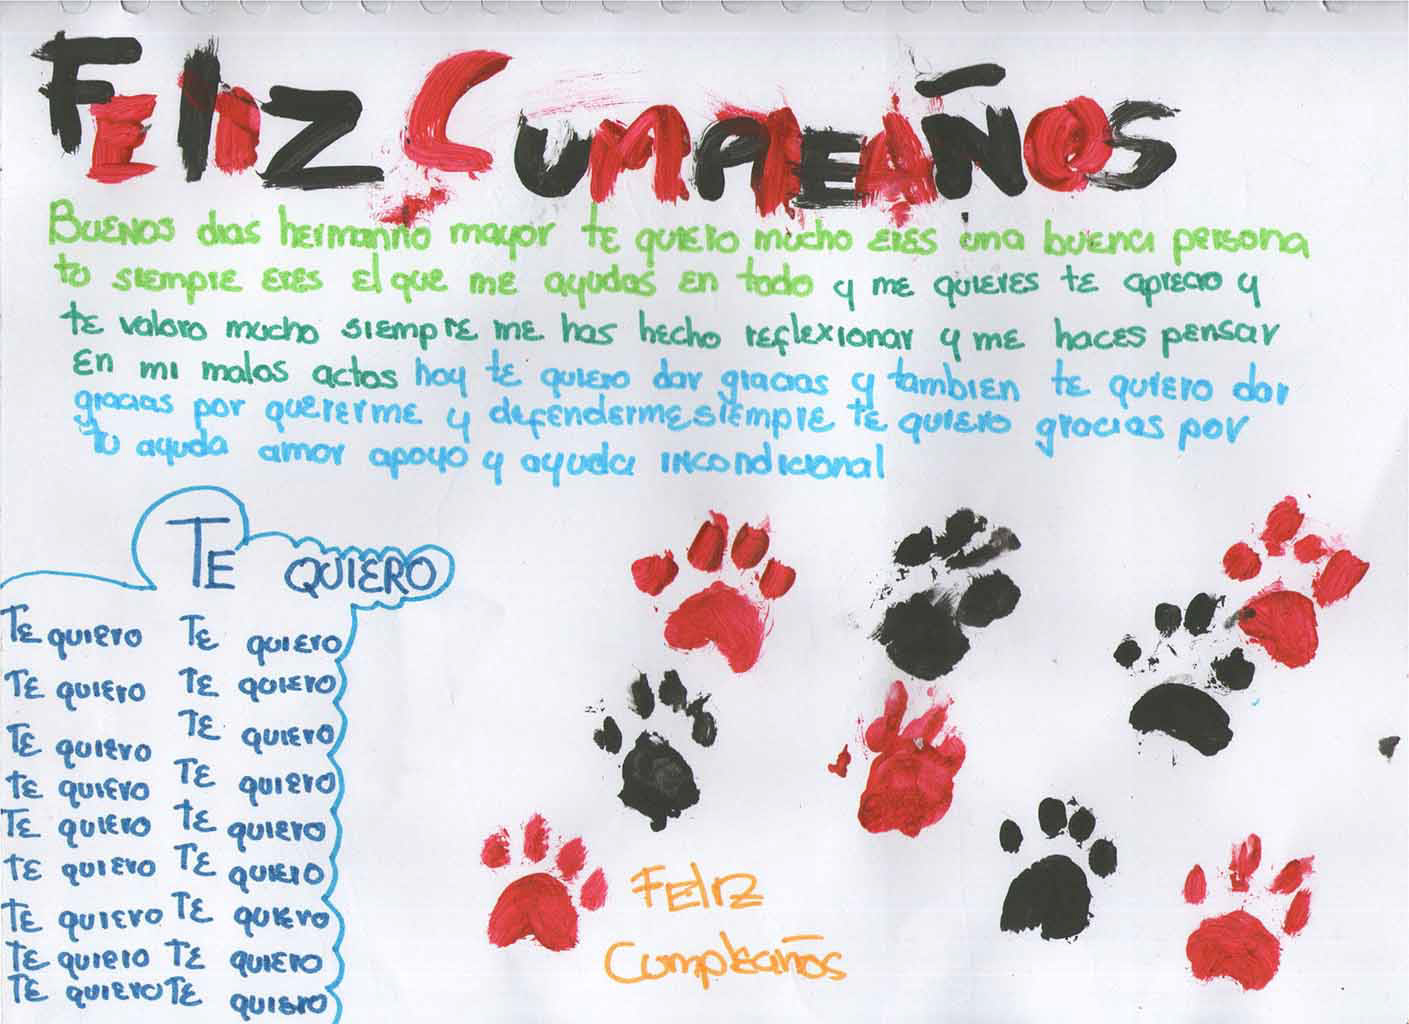 FELIZ CUMPLEAÑOS
Buenos dias hermanno mayor te quiero mucho eres una buena persona
tu siempre eres el que me ayudas en todo y me quieres te aprecio y
te valoro mucho siempre me has hecho reflexionar y me haces pensar
en mi malos actos hoy te quiero dar gracias y tambien te quiero dar
gracias por quererme y defenderme siempre te quiero gracias por
tu ayuda amor apoyo y ayuda incondicional
TE QUIERO
Te quiero Te quiero
Te quiero Te quiero
Te quiero Te quiero
te quiero Te quiero
Te quiero te quiero
te quiero Te quiero
Te quiero Te quiero
Te quiero Te quiero
Te quiero Te quiero
Feliz
Cumpleaños